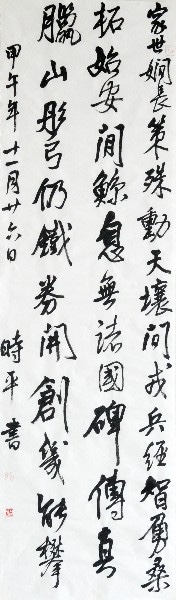 家世娴長策殊勳天壤间戎兵经智勇桑
柘始安闲鲸息無諸國碑傳真
臘山彤弓仍鐵券開創幾能攀
甲午年十一月廿六日
時平書